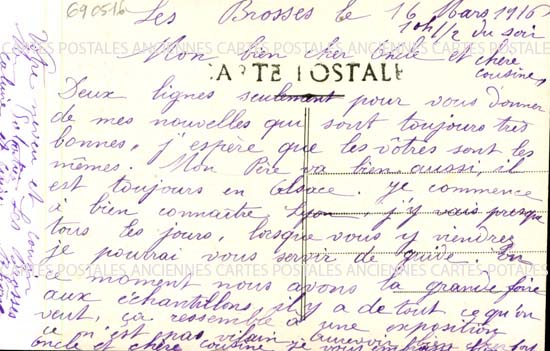 69051b
Les Brosses le 16 Mars 1916
10h 1/2 du soir
Mon bien cher Oncle et chère
cousine,
CARTE POSTALE
Deux lignes seulement pour vous donner
de mes nouvelles qui sont toujours très
bonnes, j'espère que les vôtres sont les
mêmes. Mon Père va bien aussi, il
est toujours en Alsace. Je commence
à bien connaître Lyon, j'y vais presque
tous les jours, lorsque vous y viendrez
je pourrai vous servir de guide. En
ce moment nous avons la grande foire
aux échantillons, il y a de tout ce qu'on
veut, ça ressemble à une exposition
ce n'est pas vilain, aurevoir
oncle et chère cousine, je vous
Votre neveu et cousin
Les Brosses
CARTES POSTALES ANCIENNES CARTES POSTALES ANCIENNES CARTES POSTALES